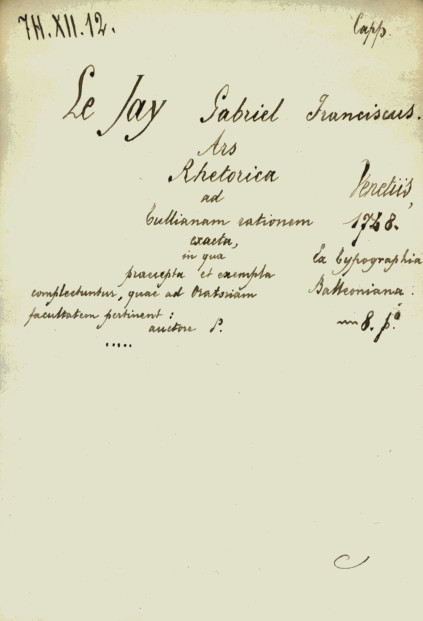 7H.XII.12. Capp.
Le Jay Gabriel Franciscus.
Ars
Rhetorica
ad
Tullianam rationem
exacta,
in qua
praecepta et exempla
complectuntur, quae ad Oratoriam
facultatem pertinent:
auctore P.
.....
Venetiis,
1748.
Ex Typographia
Balleoniana.
8.